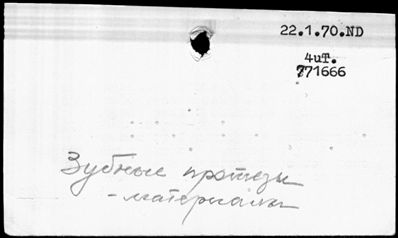 22.1.70.ND
4чт.
771666
Зубные протезы
-материалы